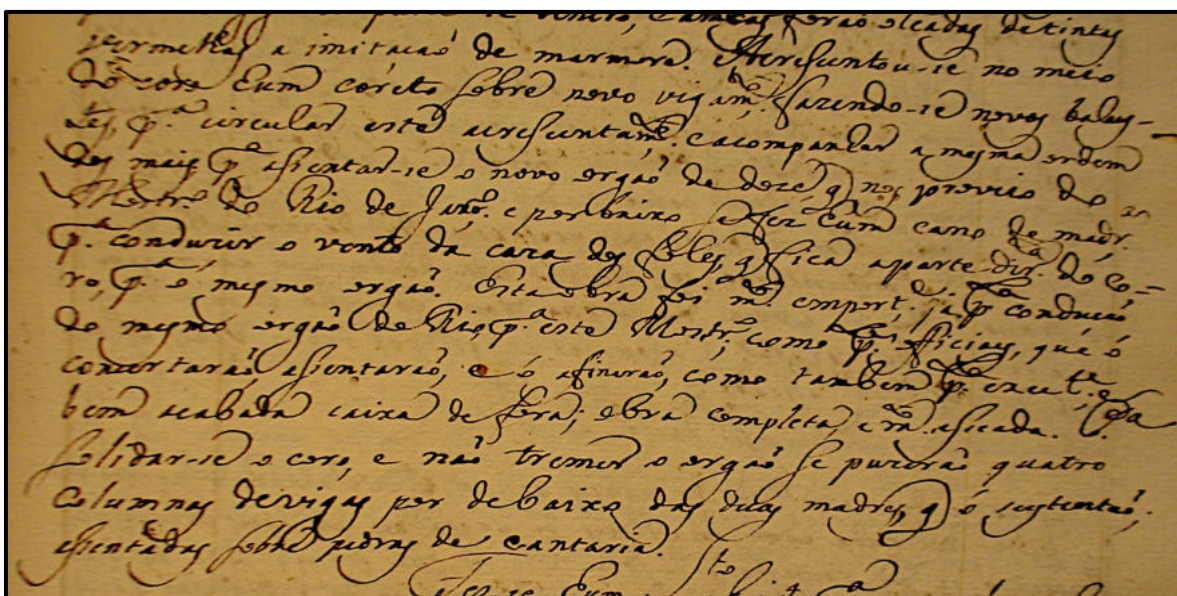 de vento, e ambas serão elcadas de tintas
vermelhas a imitaçaõ de marmora. Acresuntou-se no meio
do coro hum corêto sobre novo vigam.to fazendo-se novos balaus-
tes, p.a circular este acresuntam.to e acompanhar a mesma ordem
dos mais, p.a assentar-se o novo orgaõ de doze q nos proveio do
Mestr.e do Rio de Janr.o e por baixo se fez hum cano de madr.a
p.a conduzir o vento da caza dos foles, q fica aparte dir.ta do co-
ro, p.a o mesmo orgaõ. Esta obra foi m.to emport.e, ja p.la conduçaõ
do mesmo orgaõ do Rio, p.a este Mostr.o, como p.los officiaes, que o
concertaraõ, assentaraõ, e o afinaraõ, como tambem p.la excel.te, e
bem acabada caixa de fora; obra completa, e m.to asseada. P.a
solidar-se o coro, e naõ tremer o orgaõ se puzeraõ quatro
columnas de vigas por debaixo das duas madres, q o sustentaõ,
assentadas sobre pedras de cantaria.
Fez-se hum